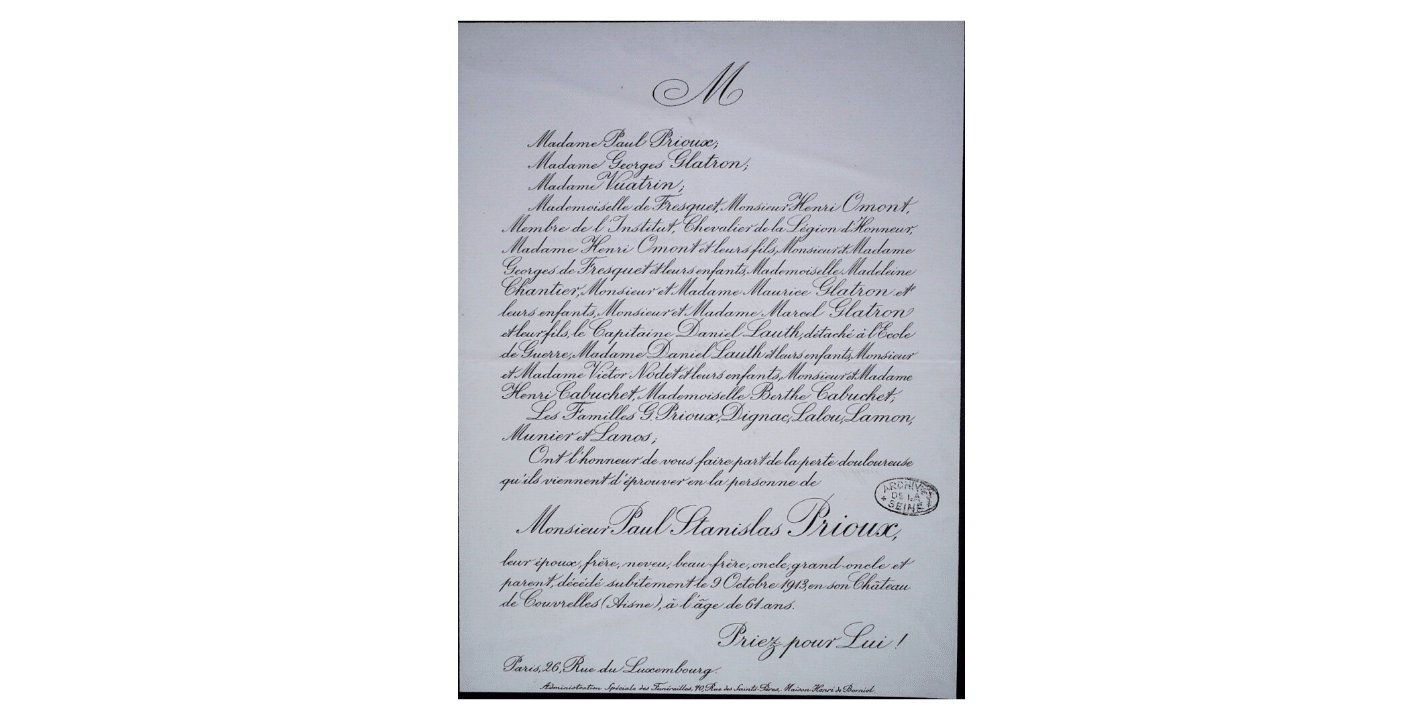 M
Madame Paul Prioux;
Madame Georges Glatron;
Madame Vuatrin;
Mademoiselle de Fresquet, Monsieur Henri Omont,
Membre de l'Institut, Chevalier de la Légion d'Honneur,
Madame Henri Omont et leurs fils, Monsieur et Madame
Georges de Fresquet et leurs enfants, Mademoiselle Madeleine
Chantier, Monsieur et Madame Maurice Glatron et
leurs enfants, Monsieur et Madame Marcel Glatron
et leur fils, le Capitaine Daniel Lauth, détaché à l'Ecole
de Guerre, Madame Daniel Lauth et leurs enfants, Monsieur
et Madame Victor Nodet et leurs enfants, Monsieur et Madame
Henri Cabuchet, Mademoiselle Berthe Cabuchet;
Les Familles G. Prioux, Dignac, Lalou, Lamon,
Munier et Lanos;
Ont l'honneur de vous faire part de la perte douloureuse
qu'ils viennent d'éprouver en la personne de
ARCHIVES
DE LA
* SEINE *
Monsieur Paul Stanislas Prioux,
leur époux, frère, neveu, beau-frère, oncle, grand-oncle et
parent, décédé subitement le 9 Octobre 1913, en son Château
de Couvrelles (Aisne), à l'âge de 61 ans.
Priez pour Lui !
Paris, 26, Rue du Luxembourg.
Administration Spéciale des Funérailles, 70, Rue des Saints-Pères, Maison Henri de Borniol.